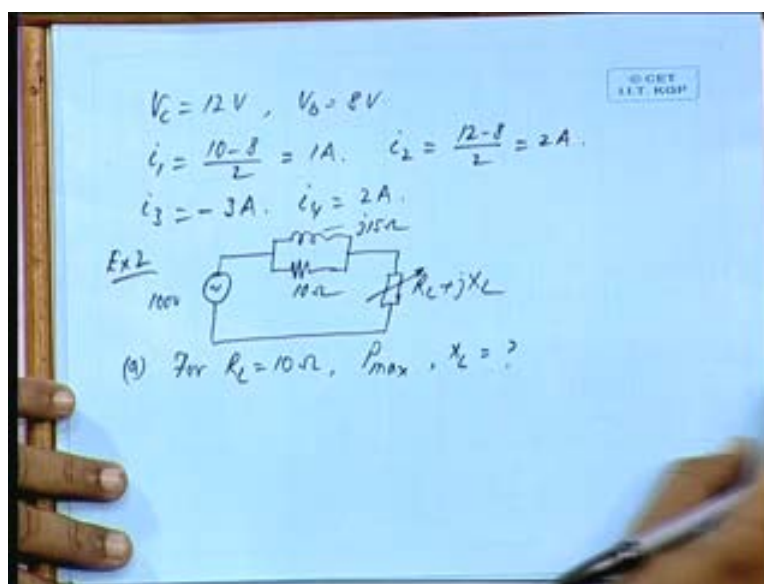 © CET
I.I.T. KGP
V_C = 12V, V_b = 8V
i_1 = (10-8)/2 = 1A. i_2 = (12-8)/2 = 2A.
i_3 = -3A. i_4 = 2A.
j15Ω
Ex 2
100V
10Ω
R_L + jX_L
(a) For R_L = 10Ω, P_max, X_L = ?